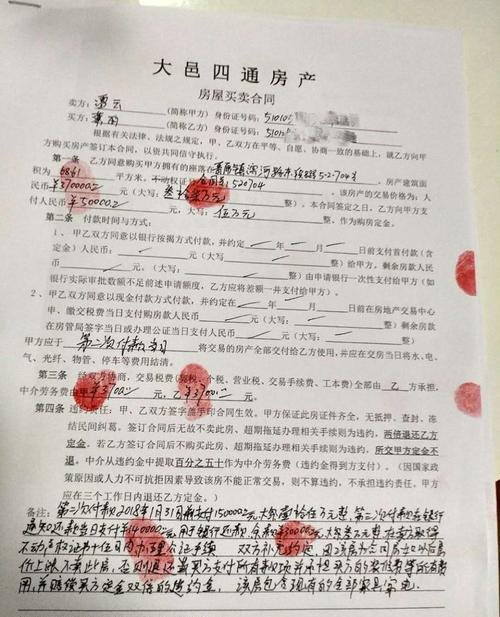 大邑四通房产
房屋买卖合同
卖方： （简称甲方）身份证号码：
买方： （简称乙方）身份证号码：
根据有关法律、法规之规定，甲、乙双方在平等、自愿、协商一致的基础上，就乙方向甲
方购买房产签订本合同，以资共同信守执行。
第一条 乙方同意购买甲方拥有的座落在 房产建筑面
积为 平方米。不动权证 该房产的交易价格为：人
民币¥370000元（大写：叁拾柒万元），本合同签定之日，乙方向甲方支
付人民币¥50000元（大写：伍万元 整，作为购房定金。
第二条 付款时间与方式：
1、甲乙双方同意以银行按揭方式付款，并约定 年 月 日前支付首付款（含
定金）人民币： 元（大写： 整）给甲方，剩余房款人民
币 元（大写： 整）由申请银行一次性支付给甲方（如
银行实际审批数额不足前述申请额度，乙方应将差额一并支付给甲方。
2、甲乙双方同意以现金付款方式付款，并约定在 年 月 日前在房地产交易中心
申、缴交税费当日支付人民币 元（大写： 整）剩余房款
在房管局签字当日或办理公证当日支付人民币 元（大写： 整）。
甲方应于 第二次付款当日 将交易的房产全部交付给乙方使用，并应在交房当日将水、电、
气、光纤、物管、停车等费用结清。
第三条 经双方协商，交易税费（契税、个税、营业税、交易手续费、工本费）全部由 乙 方承担，
中介劳务费由甲 乙
第四条 违约责任：甲、乙双方签字盖手印合同生效。甲方保证此房证件齐全，无抵押、查封、冻
结民间纠葛。签订合同后无故不卖此房、超期拖延办理相关手续则为违约，两倍退还乙方
定金。若乙方签订合同后不购买此房、超期拖延办理相关手续则为违约，所交甲方定金不
退。中介从违约金中提取百分之五十作为中介劳务费（违约金得到方支付）。（因国家政
策原因或人力不可抗拒因素导致该房不能正常交易，则不算违约，不承担违约责任。甲方
应在三个工作日内退还乙方定金）。
备注：第二次付款2018年1月31日前支付150000元大写壹拾伍万元整，第三次付款在银行
通知还款当日支付¥140000元，用于银行还款，余款¥30000元大写叁万元整在卖方取得
不动产权证第十个日内办理公证手续 双方补充约定
用，并赔偿买方定金双倍的违约金。该房包含现有的全部家具家电。